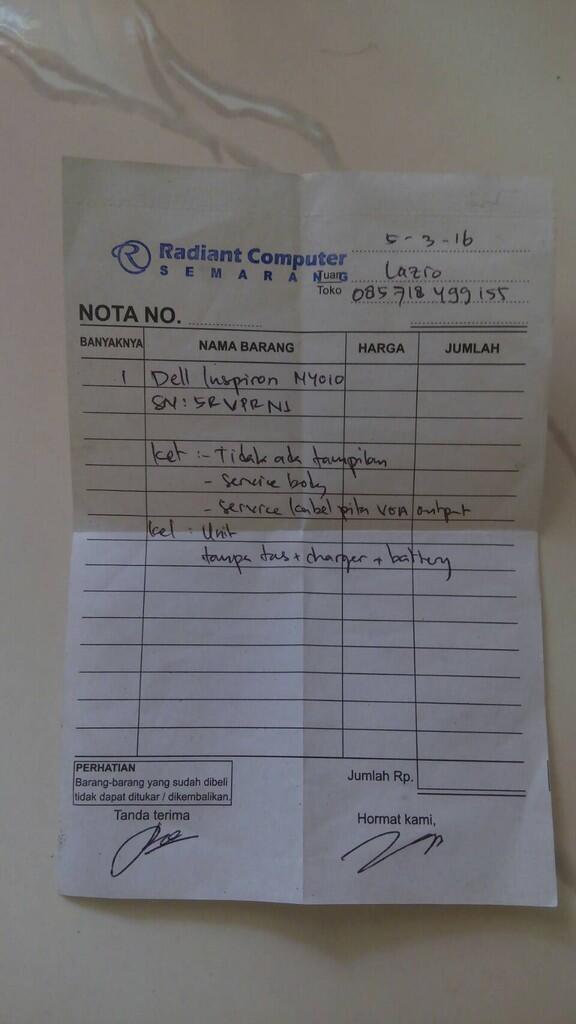 5-3-16
Radiant Computer
SEMARANG
Tuan Lazio
Toko 085 718 499 155
NOTA NO.
BANYAKNYA NAMA BARANG HARGA JUMLAH
1 Dell Inspiron N4010
SN: 5RVPRN1
ket :- Tidak ada tampilan
- Service body
- Service kabel pita VGA output
kel : Unit
tanpa tas + charger + battery
PERHATIAN
Barang-barang yang sudah dibeli
tidak dapat ditukar / dikembalikan.
Jumlah Rp.
Tanda terima Hormat kami,